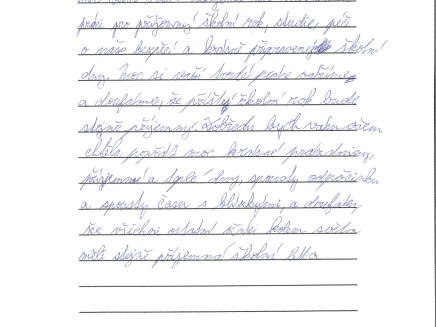 práci pro příjemný školní rok, studie, péči
o naše bezpečí a krásně připravené školní
dny. Moc si vaší tvrdé práce vážíme
a doufáme, že příští školní rok bude
stejně příjemný. Dobře by vám všem
chtěla popřát moc krásné prázdniny,
příjemné a teplé dny, spousty odpočinku
a spousty času s blízkými, a doufám,
že všichni ostatní žáci kolem světa
měli stejně příjemná školní léta